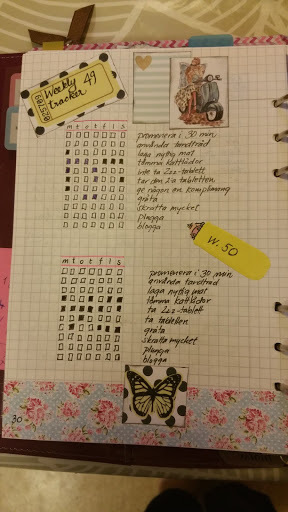 Weekly
tracker 49
m t o t f l s
promenera i 30 min
använda tandtråd
laga nyttig mat
tömma kattlådor
inte ta Zzz-tablett
ge någon en komplimang
gråta
skratta mycket
plugga
blogga
w. 50
m t o t f l s
promenera i 30 min
använda tandtråd
laga nyttig mat
tömma kattlådor
ta Zzz-tablett
ta tabletten
gråta
skratta mycket
plugga
blogga
30